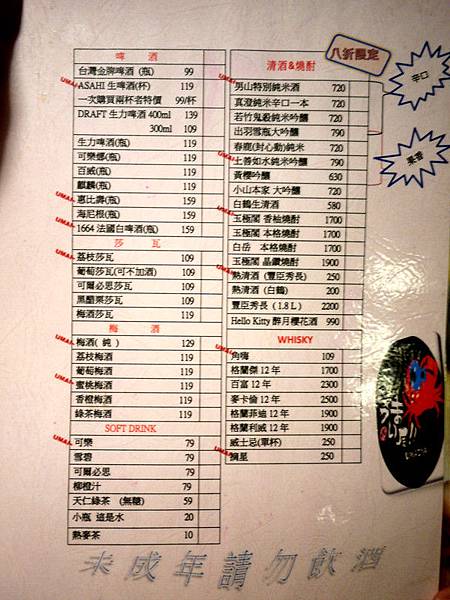 啤 酒
台灣金牌啤酒 (瓶) 99
UMAI ASAHI 生啤酒(杯) 119
一次購買兩杯者特價 99/杯
DRAFT 生力啤酒 400ml 139
300ml 109
生力啤酒(瓶) 119
可樂娜(瓶) 119
百威(瓶) 119
麒麟(瓶) 119
UMAI 惠比壽(瓶) 159
海尼根(瓶) 159
UMAI 1664 法國白啤酒(瓶) 159
莎 瓦
UMAI 荔枝莎瓦 109
葡萄莎瓦(可不加酒) 109
可爾必思莎瓦 109
黑醋栗莎瓦 109
梅酒莎瓦 119
梅 酒
UMAI 梅酒( 純 ) 129
荔枝梅酒 119
葡萄梅酒 119
UMAI 蜜桃梅酒 119
香橙梅酒 119
綠茶梅酒 119
SOFT DRINK
UMAI 可樂 79
雪碧 79
可爾必思 79
柳橙汁 79
天仁綠茶 (無糖) 59
小瓶 這是水 20
熱麥茶 10
清酒&燒酎
八折限定
辛口
果香
UMAI 男山特別純米酒 720
真澄純米辛口一本 720
若竹鬼殺純米吟釀 720
出羽雪瓶大吟釀 790
春鹿(封心動)純米 720
UMAI 上善如水純米吟釀 790
黃櫻吟釀 630
小山本家 大吟釀 720
白鶴生清酒 580
UMAI 玉極閣 香柚燒酎 1700
玉極閣 本格燒酎 1700
白岳 本格燒酎 1700
玉極閣 晶鑽燒酎 1900
UMAI 熱清酒 (豐臣秀長) 250
熱清酒 (白鶴) 200
豐臣秀長 ( 1.8L ) 2200
Hello Kitty 醉月櫻花酒 990
WHISKY
UMAI 角嗨 109
格蘭傑 12 年 1700
百富 12 年 2300
麥卡倫 12 年 2500
格蘭菲迪 12 年 1900
格蘭利威 12 年 1900
威士忌(單杯) 250
UMAI 摘星 250
未成年請勿飲酒